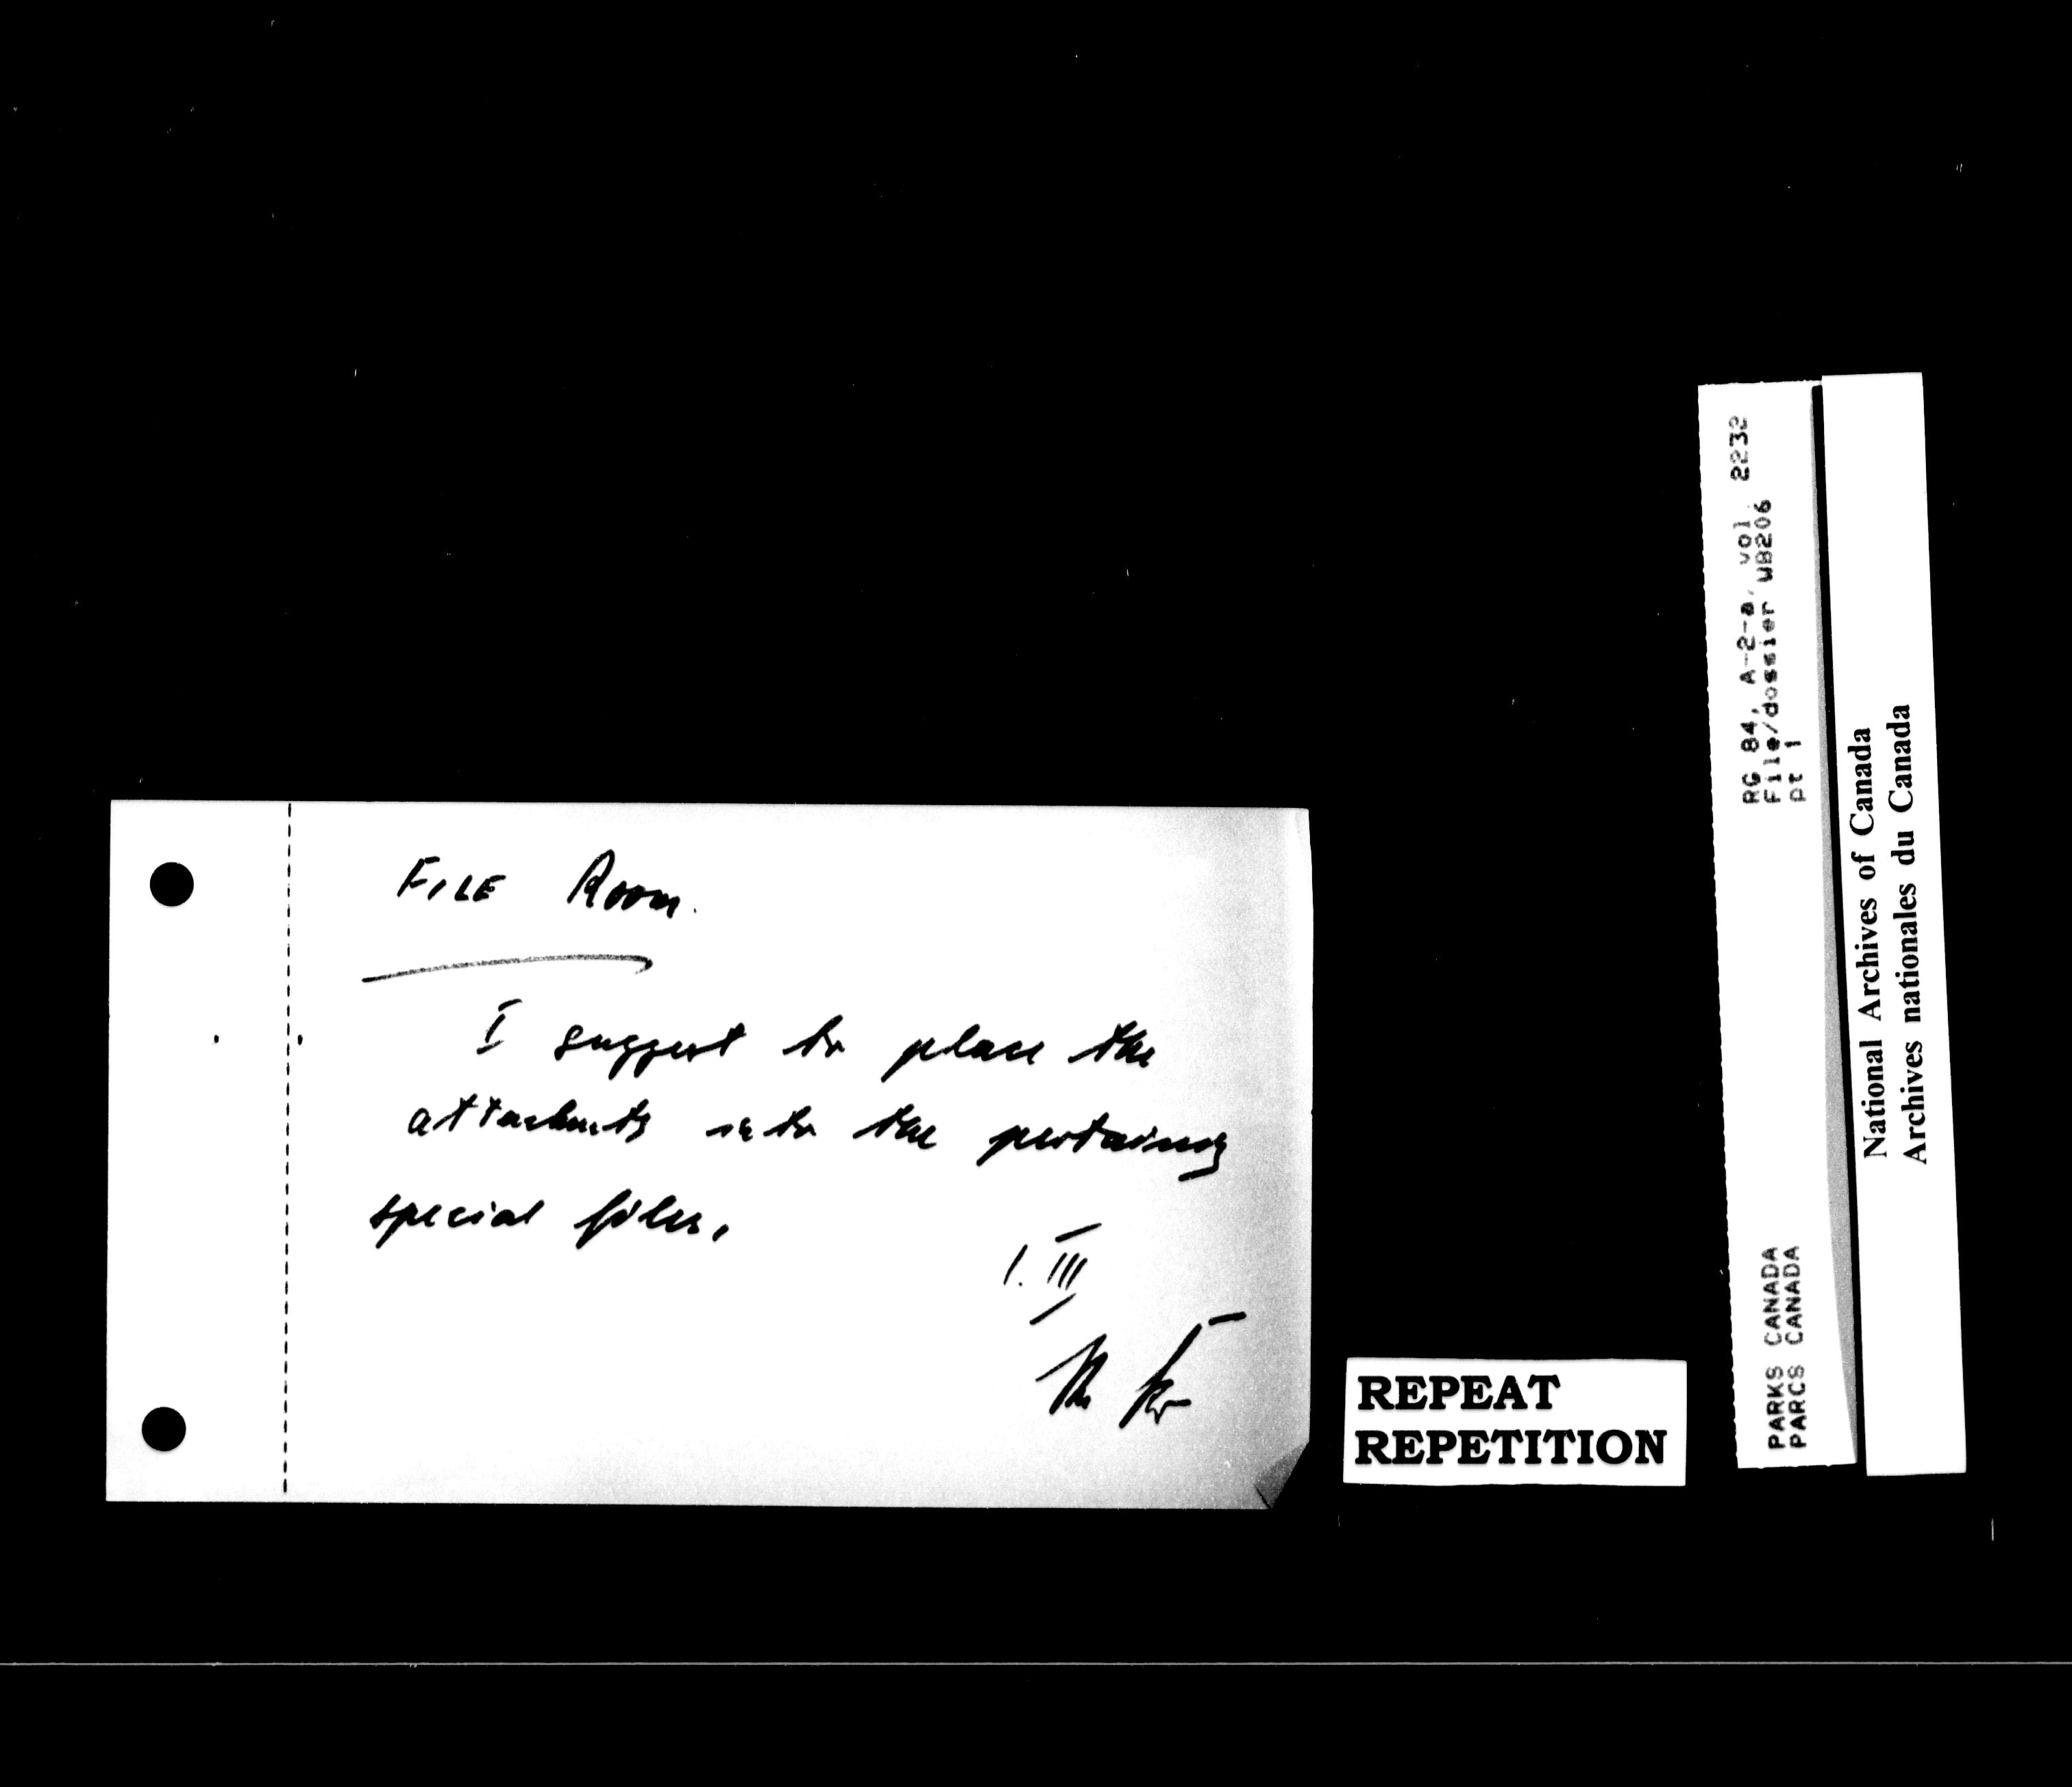 FILE Room.
I suggest to place the
attachments into the pertaining
special files.
1. III
REPEAT
REPETITION
RG 84, A-2-a, vol. 2232
File/dossier WB206
pt 1
PARKS CANADA
PARCS CANADA
National Archives of Canada
Archives nationales du Canada